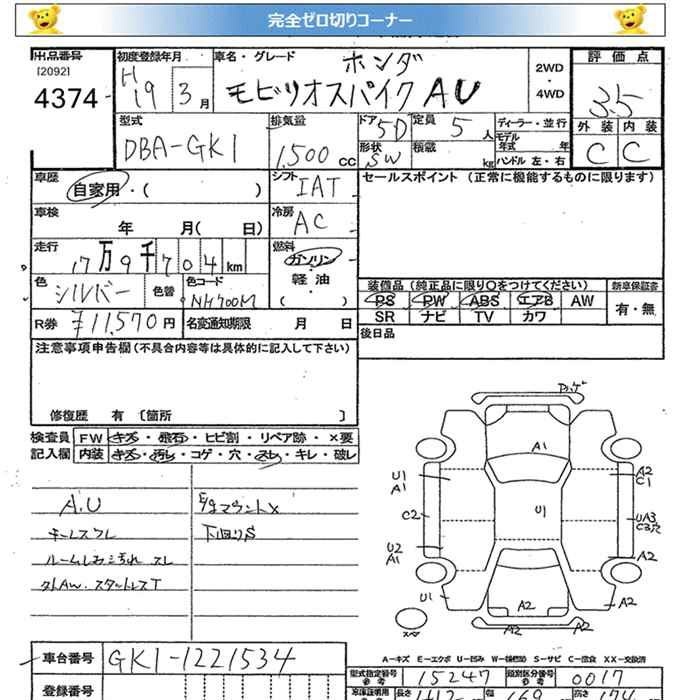 完全ゼロ切りコーナー
出品番号 初度登録年月 車名・グレード ホンダ 2WD・4WD 評価点
[2092]
4374 H19 3月 モビリオスパイク AU 3.5
型式 排気量 ドア 5D 定員 5人 ディーラー・並行 外装 内装
DBA-GK1 1,500cc 形状 SW 積載 kg モデル年式 年 C C
ハンドル 左・右
車歴 自家用・( ) シフト IAT セールスポイント (正常に機能するものに限ります)
車検 年 月( 日) 冷房 AC
走行 17万9千704km 燃料 ガソリン
軽油
( )
色 シルバー 色替 色コード NH700M 装備品(純正品に限り○をつけてください) 新車保証書
PS PW ABS エアB AW 有・無
R券 ¥11,570円 名変通知期限 月 日 SR ナビ TV カワ
注意事項申告欄(不具合内容等は具体的に記入して下さい) 後日品
修復歴 有 〔箇所 〕
検査員 FW キズ・飛石・ヒビ割・リペア跡・×要
記入欄 内装 キズ・汚レ・コゲ・穴・スレ・キレ・破レ
A.U
キーレスフレ 下回りS
ルームしみ汚れ スレ
外AW.スタットレスT
A1
U1
A1
C2
U1
A2
C1
UA3
C3穴
U2
A1
A2
U1
A2
A2
A2
A-キズ E-エクボ U-凹み S-サビ C-腐食 XX-交換済
車台番号 GK1-1221534
型式指定番号 15247 類別区分番号 0017
登録番号 長さ 幅 高さ